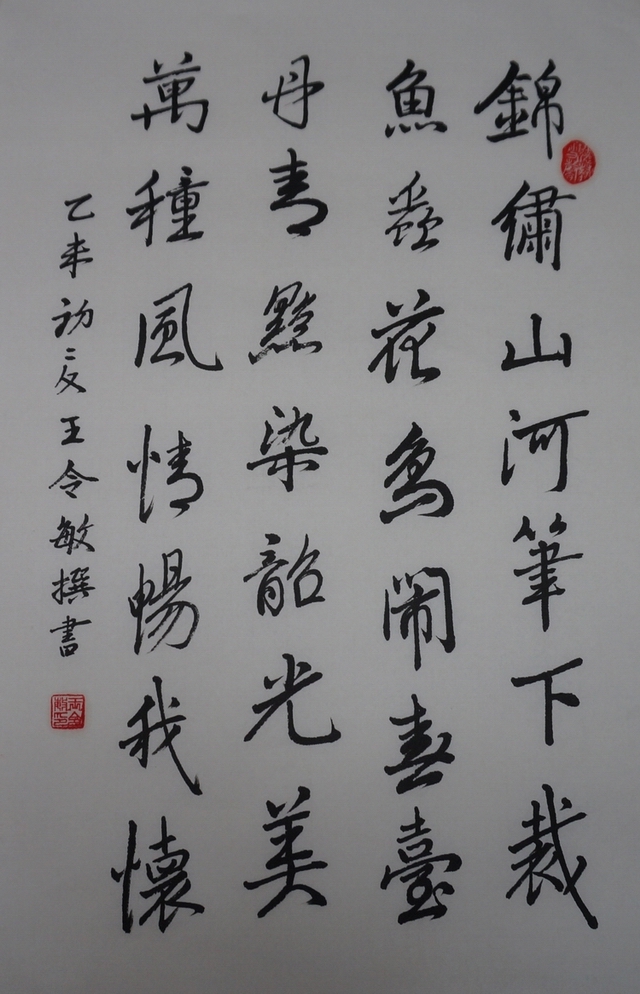 錦繡山河筆下裁
魚蟲花鳥鬧春臺
丹青點染韶光美
萬種風情暢我懷
乙未初夏王令敏撰書